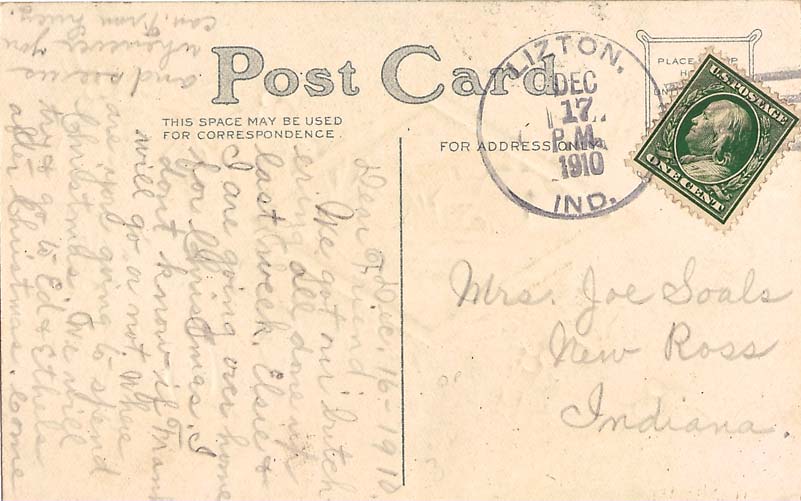 Post Card
THIS SPACE MAY BE USED
FOR CORRESPONDENCE.
FOR ADDRESS ONLY.
PLACE
LIZTON,
DEC
17
P.M.
1910
IND.
U.S. POSTAGE
ONE CENT
Mrs. Joe Soals
New Ross
Indiana.
Dec. 16-1910
Dear Friend
We got our butch-
ering all done up
last week. Elsie &
I are going over home
for Christmas. I
don't know if Frank
will go or not. Where
are you going to spend
Christmas. We will
try & go to Ed & Ethels
after Christmas. come
and see us
whenever you
can. From